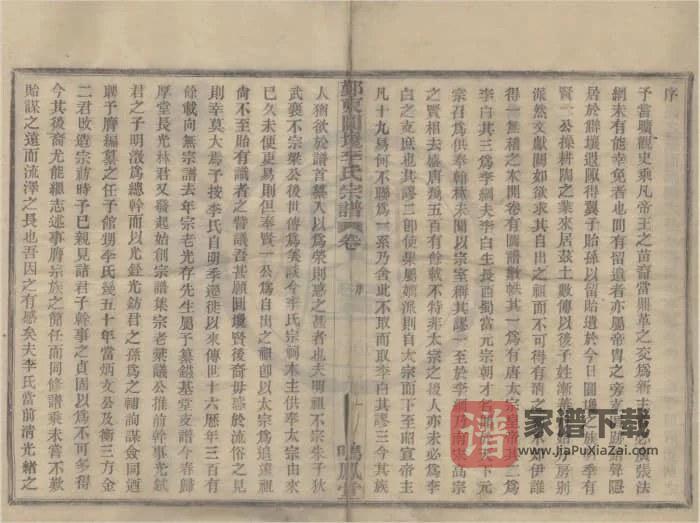 序
予嘗曠觀史乘凡帝王之苗裔當鼎革之交爲新主
網未有能幸免者間有留遺者亦屬帝冑之旁支
居於僻壤遐陬得翼子貽孫以留貽遺於今日圓
賢一公操耕陶之業來居茲土數傳以後子姓漸
派然文獻闕如欲求其自出之祖而不可得有清之
得一無稽之本開卷有圖譜數帙其一爲有唐太宗皇帝其二爲
李白其三爲李綱夫李白生長酉蜀當元宗朝才
宗召爲供奉翰林未聞以宗室稱其謬一至於李綱乃南宋高宗
之賢相去盛唐爲五百有餘載不特非太宗之後人亦未必爲李
白之支庶也其謬二卽使果屬嫡派則自太宗而下至昭宣帝主
凡十九易何不聯爲一系乃舍此不取而取李白其謬三今其族
鄞東圓瓊李氏宗譜 卷
序
一
鳴鳳堂
人猶欲於譜首纂入以爲榮則惑之甚者也夫明祖不宗朱子狄
武襄不宗梁公後世傳爲美談今李氏宗祠木主供奉太宗由來
已久未便更易則但奉賢一公爲自出之祖卽以太宗爲追遠祖
尙不至貽有識者之訾議吾甚願圓瓊賢後裔毋惑於流俗之見
則幸莫大焉予按李氏自明季遷徙以來傳世十六歷年三百有
餘載向無宗譜去年宗老光存先生屬予纂鎰基堂支譜今春歸
厚堂長光林君又發起始創宗譜集宗老輩議公推前幹事光鉽
君之子明澂爲總幹而以光銓光鈁君之孫爲之輔詢謀僉同迺
聘予膺編纂之任予館甥李氏幾五十年當炳文公及衡三方金
二君改造宗祠時予已親見諸君子幹事之貞固以爲不可多得
今其後裔尤能繼志述事膺宗族之簡任而同修譜乘未嘗不歎
貽謀之遠而流澤之長也吾因之有感矣夫李氏當前清光緒之
譜
家谱下载
www.JiaPuXiaZai.com